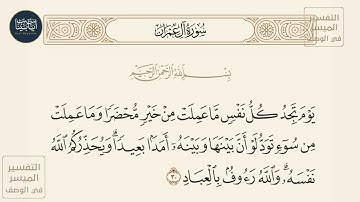 سُورَةُ آلِ عِمْرَانَ
بِسْمِ اللَّهِ الرَّحْمَٰنِ الرَّحِيمِ
يَوْمَ تَجِدُ كُلُّ نَفْسٍ مَّا عَمِلَتْ مِنْ خَيْرٍ مُّحْضَرًا وَمَا عَمِلَتْ
مِن سُوٓءٍ تَوَدُّ لَوْ أَنَّ بَيْنَهَا وَبَيْنَهُۥٓ أَمَدًۢا بَعِيدًا ۗ وَيُحَذِّرُكُمُ ٱللَّهُ
نَفْسَهُۥ ۗ وَٱللَّهُ رَءُوفٌۢ بِٱلْعِبَادِ ٣٠
التفسير
الميسر
في الوصف
التفسير
الميسر
في الوصف